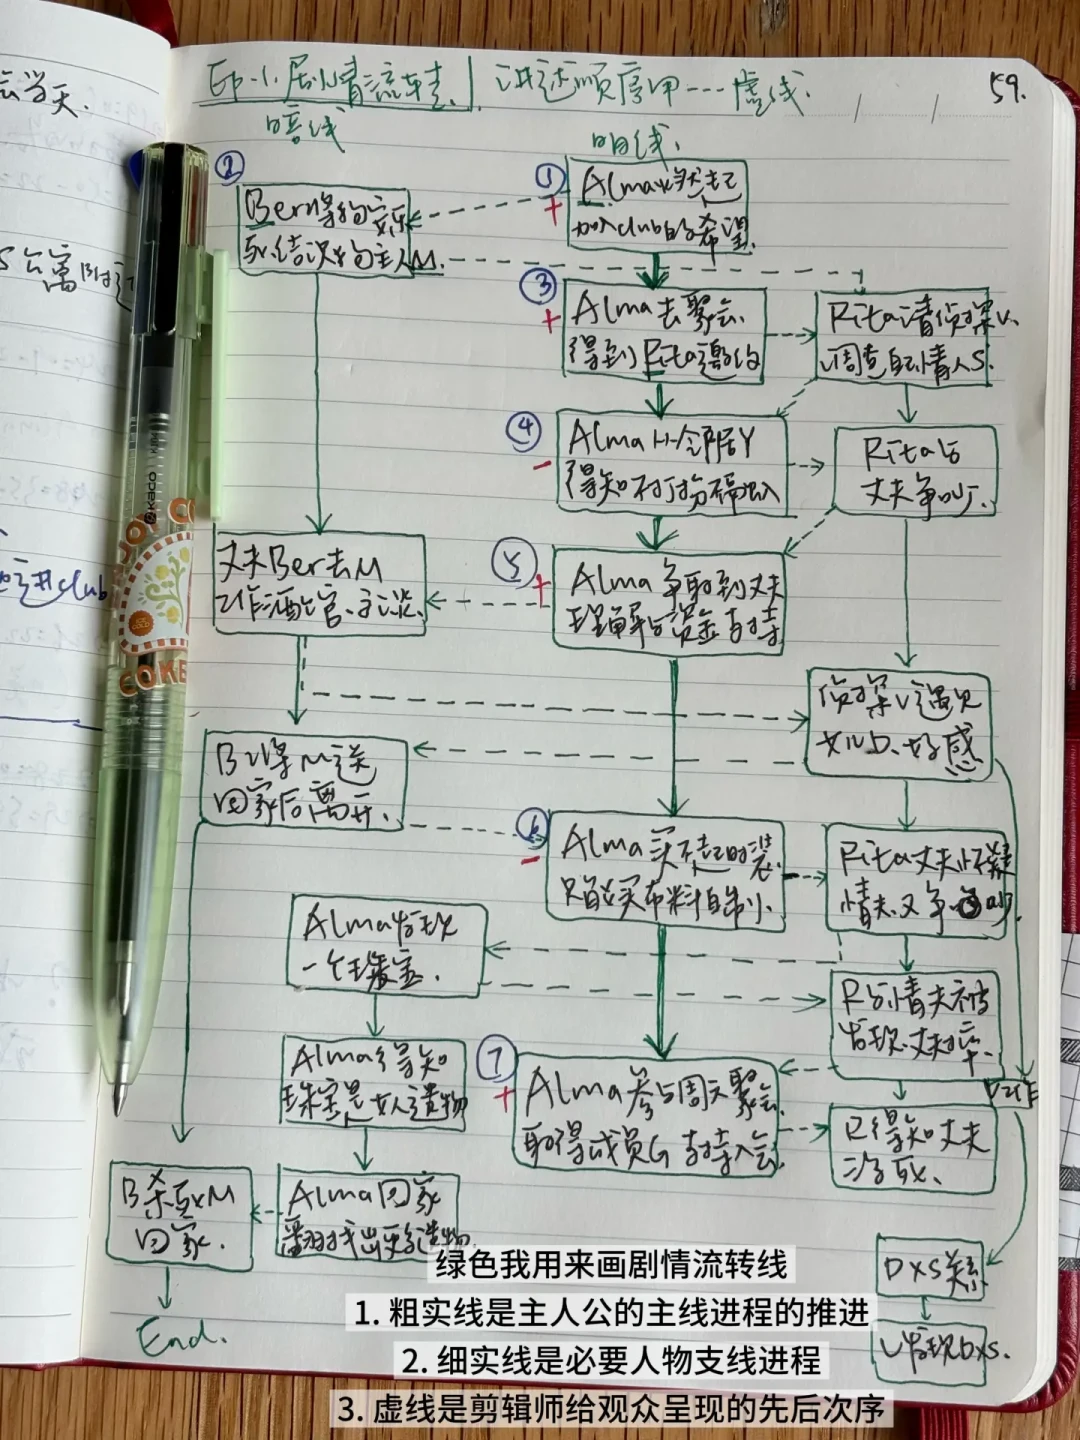 Ep.1.剧情流转. 讲述顺序用---虚线.
59.
暗线
明线.
②
①
Alma燃起
加入club的希望.
+
③
Alma去聚会.
得到Rita邀约
+
Rita请侦探V.
调查自己情人S.
④
Alma从邻居Y
得知
-
Rita与
丈夫争吵.
丈夫Ber去M
工作
⑤
Alma争取到丈夫
理解与资金支持
+
侦探V遇见
女儿D.好感
B
回家后离开.
⑥
Alma买不起时装
只能买布料自制小.
-
Rita丈夫怀疑
情夫.又争吵
Alma发现
一个珠宝.
R与情夫被
发现.丈夫
Alma得知
珠宝是女人遗物
⑦
Alma参与周天聚会.
取得成员G支持入会.
+
R得知丈夫
没死.
B杀死M
回家.
Alma回家
翻找出更多遗物
End.
DxS关系
V发现DxS.
KACO
COKE
绿色我用来画剧情流转线
1. 粗实线是主人公的主线进程的推进
2. 细实线是必要人物支线进程
3. 虚线是剪辑师给观众呈现的先后次序